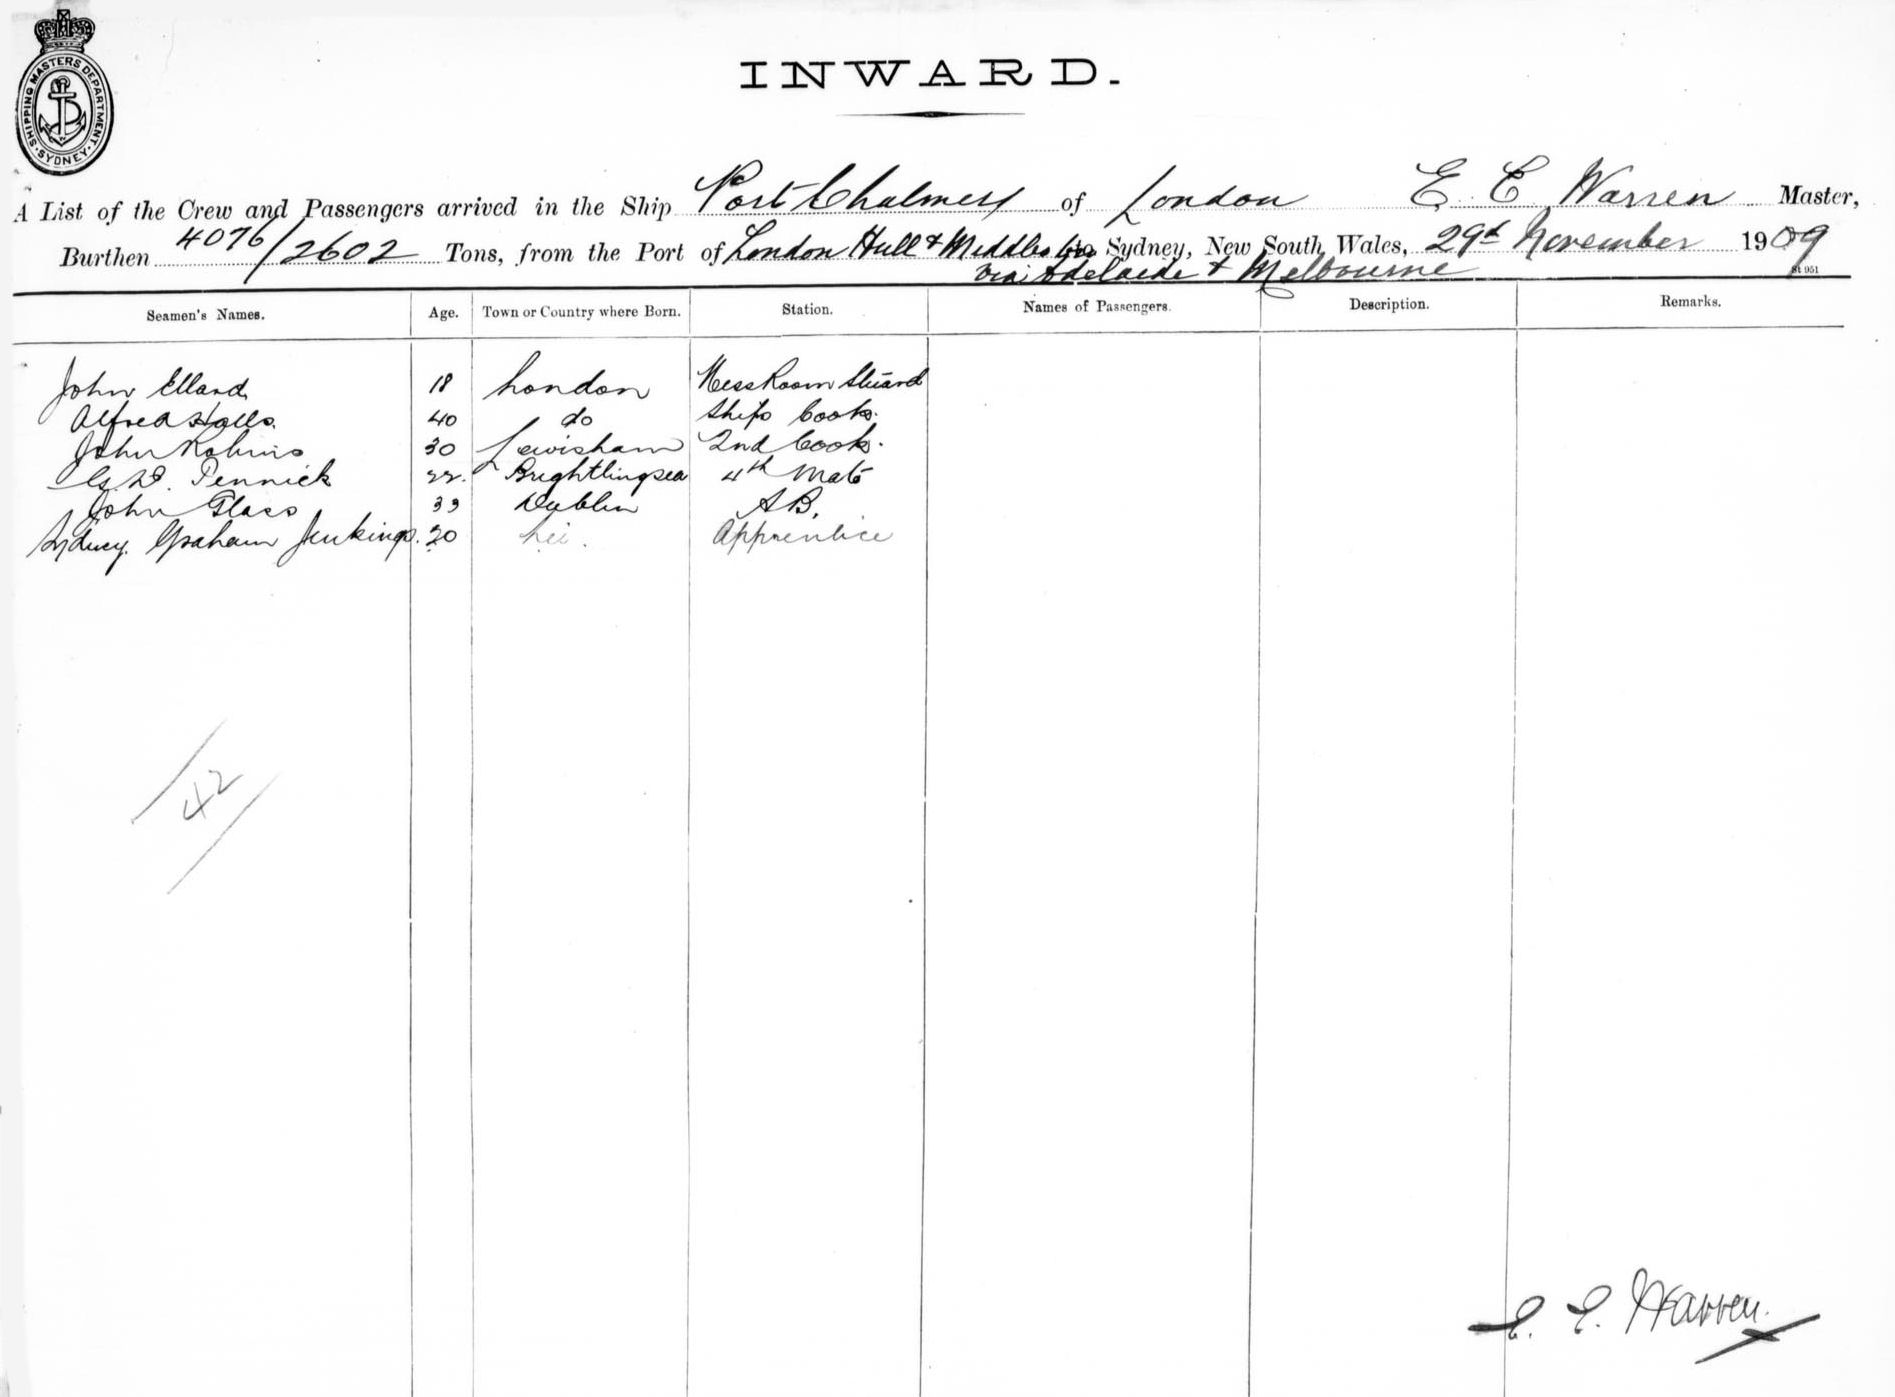 SHIPPING MASTERS DEPARTMENT. SYDNEY.
INWARD.
A List of the Crew and Passengers arrived in the Ship Port Chalmers of London E. C. Warren Master,
Burthen 4076/2602 Tons, from the Port of London Hull & Middlesbro Sydney, New South Wales, 29th November 1909
via Adelaide & Melbourne
St 951
Seamen's Names. Age. Town or Country where Born. Station. Names of Passengers. Description. Remarks.
John Ellard 18 London Mess Room Steward
Alfred Halls. 40 do Ships Cook.
John Robins 30 Lewisham 2nd Cook.
Pennick 22. Brightlingsea 4th Mate
John Glass 33 Dublin A.B.
Sydney Graham Jenkings. 20 Apprentice
42
E. C. Warren.